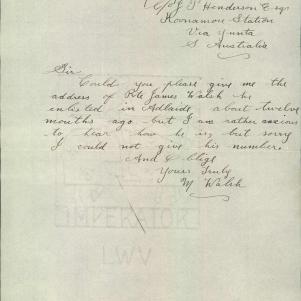 C/o J S Henderson Esq
Koonamore Station
Via Yunta
S Australia
Sir
Could you please give me the
address of Pte James Walsh he
enlisted in Adlaide, about twelve
mouths ago but I am rather anxious
to hear how he is, but sorry
I could not give his number.
And Oblige
Yours Truly
M Walsh
IMPERATOR
LWV